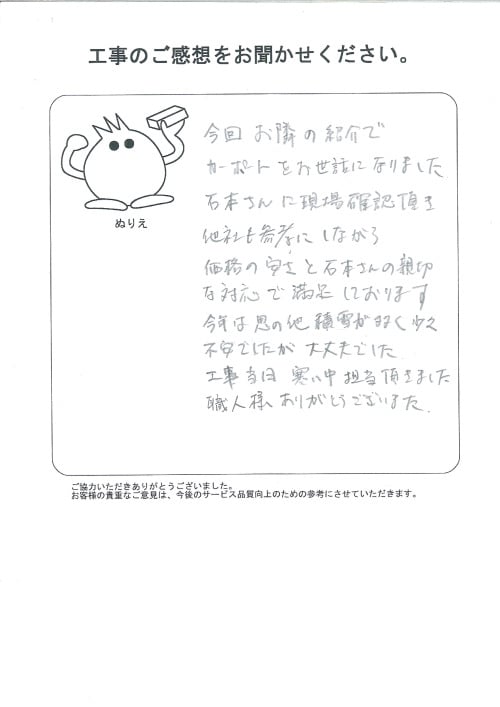 工事のご感想をお聞かせください。
ぬりえ
今回 お隣の紹介で
カーポートをお世話になりました
石本さんに現場確認頂き
他社も参考にしながら
価格の安さと石本さんの親切
な対応で満足しております
今年は思の他積雪が多く少々
不安でしたが大丈夫でした
工事当日 寒い中担当頂きました
職人様ありがとうございました。
ご協力いただきありがとうございました。
お客様の貴重なご意見は、今後のサービス品質向上のための参考にさせていただきます。